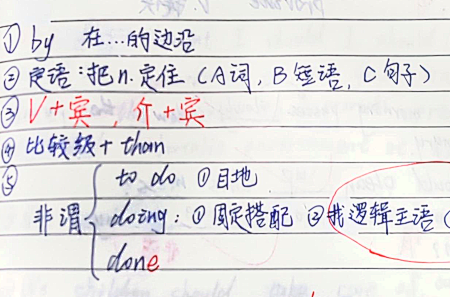 ① by 在...的边沿
② 定语:把n.定住(A词,B短语,C句子)
③ V+宾,介+宾
④ 比较级+than
⑤
to do ①目地
非谓 doing:①固定搭配 ②找逻辑主语(
done